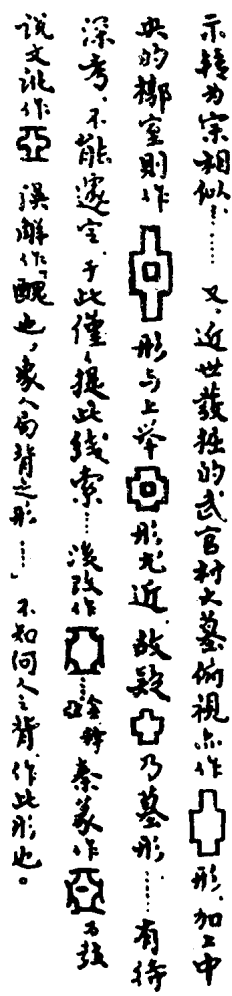 示、转为宗相似……又，近世發掘的武官村大墓俯視亦作形，加上中
央的槨室則作形与上举形尤近，故疑乃墓形……有待
深考，不能遽定，于此僅僅提此线索……後改作……金秦篆作乃與
说文訛作誤解作「醜也，象人局背之形……」不知何人之背作此形也。